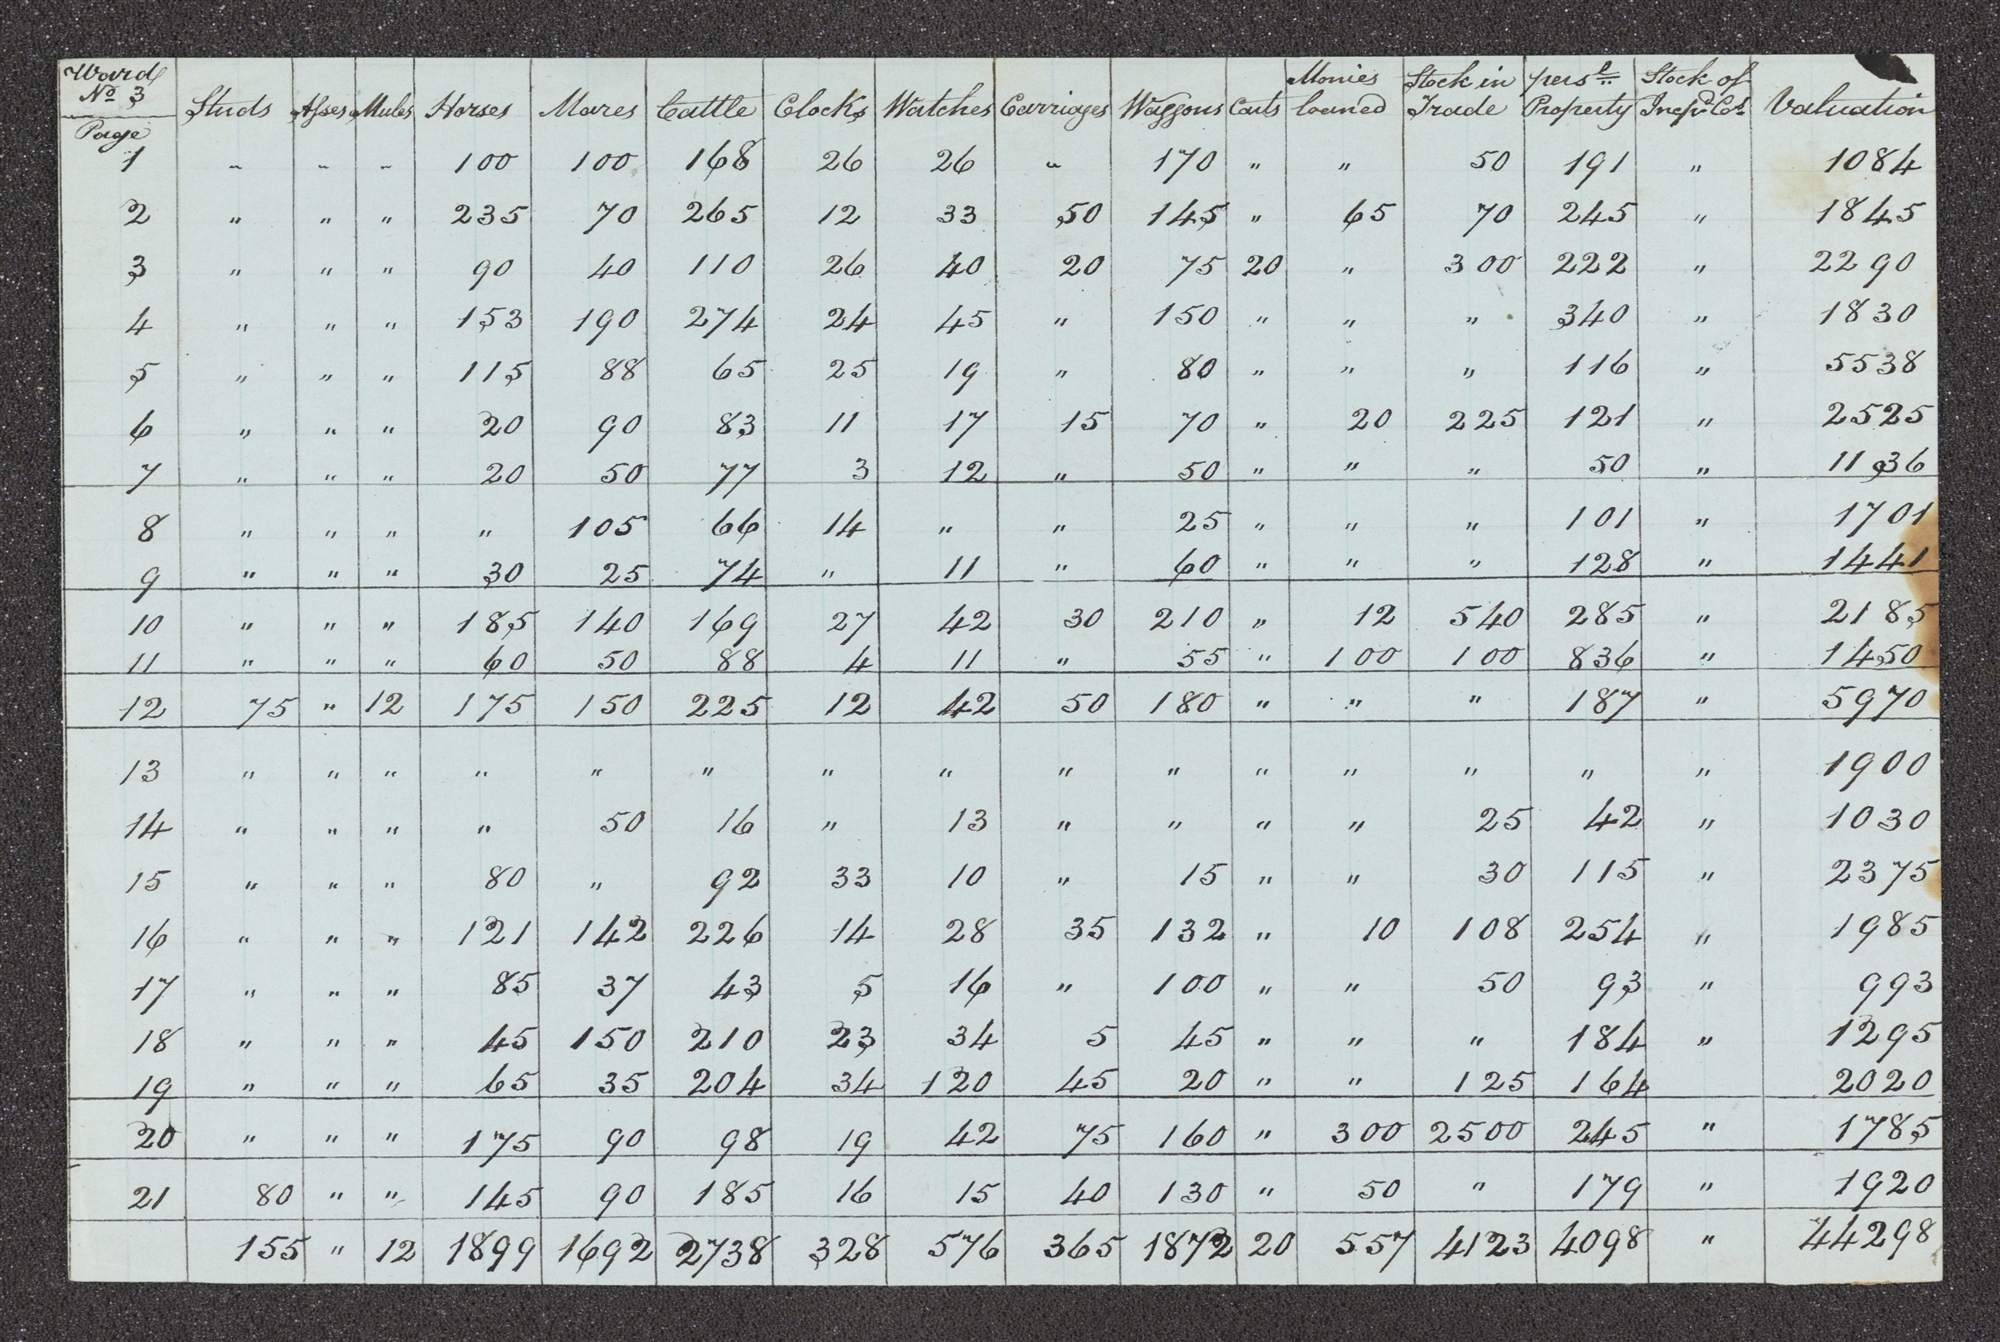 Ward No 3 Page Studs Asses Mules Horses Mares Cattle Clocks Watches Carriages Waggons Carts Monies loaned Stock in Trade persl Property Stock of Valuation
1 " " " 100 100 168 26 26 " 170 " " 50 191 " 1084
2 " " " 235 70 265 12 33 50 145 " 65 70 245 " 1845
3 " " " 90 40 110 26 40 20 75 20 " 300 222 " 2290
4 " " " 153 190 274 24 45 " 150 " " " 340 " 1830
5 " " " 115 88 65 25 19 " 80 " " " 116 " 5538
6 " " " 20 90 83 11 17 15 70 " 20 225 121 " 2525
7 " " " 20 50 77 3 12 " 50 " " " 50 " 1136
8 " " " " 105 66 14 " " 25 " " " 101 " 1701
9 " " " 30 25 74 " 11 " 60 " " " 128 " 1441
10 " " " 185 140 169 27 42 30 210 " 12 540 285 " 2185
11 " " " 60 50 88 4 11 " 55 " 100 100 836 " 1450
12 75 " 12 175 150 225 12 42 50 180 " " " 187 " 5970
13 " " " " " " " " " " " " " " " 1900
14 " " " " 50 16 " 13 " " " " 25 42 " 1030
15 " " " 80 " 92 33 10 " 15 " " 30 115 " 2375
16 " " " 121 142 226 14 28 35 132 " 10 108 254 " 1985
17 " " " 85 37 43 5 16 " 100 " " 50 93 " 993
18 " " " 45 150 210 23 34 5 45 " " " 184 " 1295
19 " " " 65 35 204 34 120 45 20 " " 125 164 2020
20 " " " 175 90 98 19 42 75 160 " 300 2500 245 " 1785
21 80 " " 145 90 185 16 15 40 130 " 50 " 179 " 1920
155 " 12 1899 1692 2738 328 576 365 1872 20 557 4123 4098 " 44298